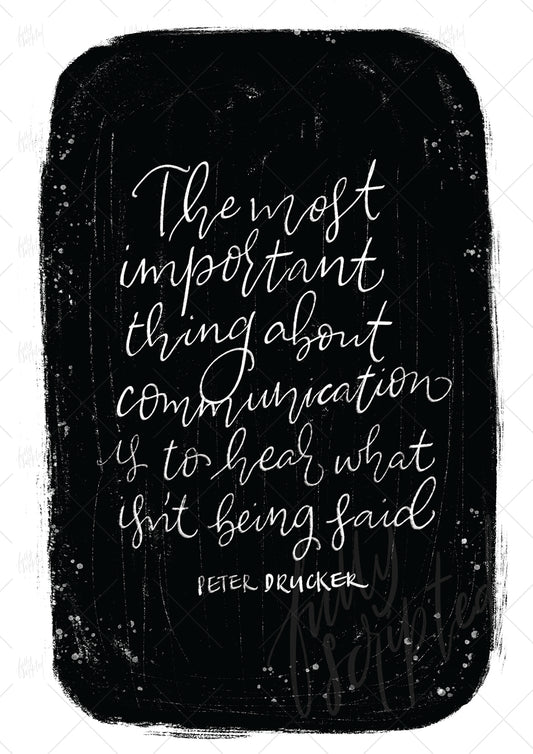 The most
important
thing about
communication
is to hear what
isn't being said
PETER DRUCKER